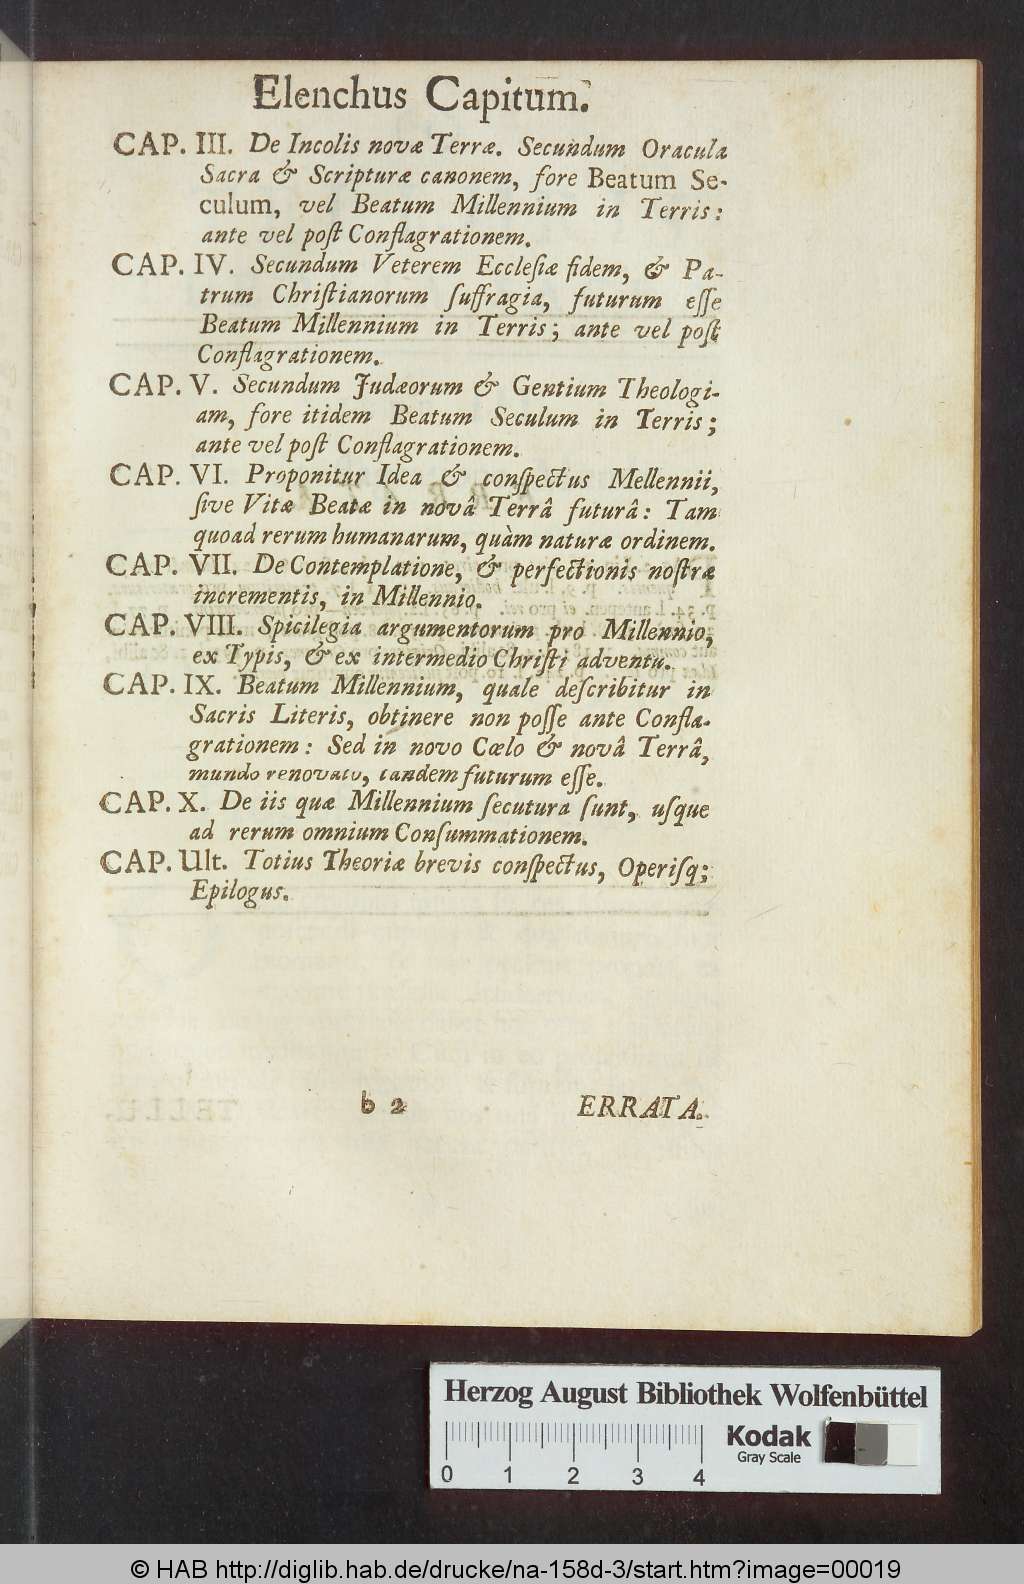 Elenchus Capitum.
CAP. III. De Incolis novæ Terræ. Secundum Oracula
Sacra & Scripturæ canonem, fore Beatum Se-
culum, vel Beatum Millennium in Terris:
ante vel poſt Conflagrationem.
CAP. IV. Secundum Veterem Eccleſiæ fidem, & Pa-
trum Chriſtianorum ſuffragia, futurum eſſe
Beatum Millennium in Terris; ante vel poſt
Conflagrationem.
CAP. V. Secundum Judæorum & Gentium Theologi-
am, fore itidem Beatum Seculum in Terris;
ante vel poſt Conflagrationem.
CAP. VI. Proponitur Idea & conſpectus Mellennii,
ſive Vitæ Beatæ in novâ Terrâ futurâ: Tam
quoad rerum humanarum, quàm naturæ ordinem.
CAP. VII. De Contemplatione, & perfectionis noſtræ
incrementis, in Millennio.
CAP. VIII. Spicilegia argumentorum pro Millennio,
ex Typis, & ex intermedio Chriſti adventu.
CAP. IX. Beatum Millennium, quale deſcribitur in
Sacris Literis, obtinere non poſſe ante Confla-
grationem: Sed in novo Cœlo & novâ Terrâ,
mundo renovato, tandem futurum eſſe.
CAP. X. De iis quæ Millennium ſecutura ſunt, uſque
ad rerum omnium Conſummationem.
CAP. Ult. Totius Theoriæ brevis conſpectus, Operiſq;
Epilogus.
b 2 ERRATA.
Herzog August Bibliothek Wolfenbüttel
Kodak
Gray Scale
0 1 2 3 4
© HAB http://diglib.hab.de/drucke/na-158d-3/start.htm?image=00019